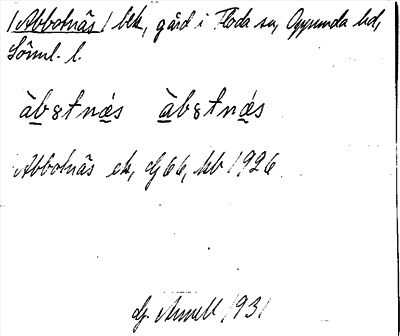 /Abbotnäs/ bek, gård i Floda sn, Oppunda hd,
Söml. l.
àbɛtnǽs àbɛtnǽs
Abbotnäs ek, Gj 66, hb 1926
Gj. 1931